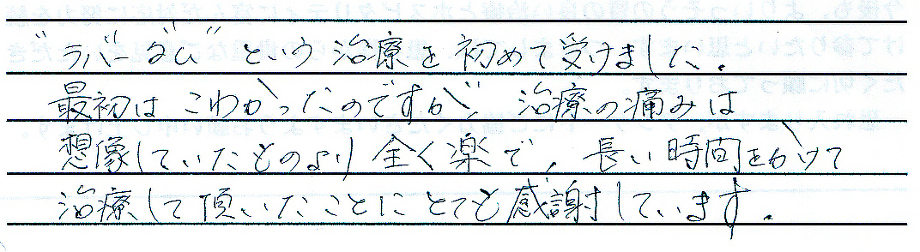 "ラバーダム" という治療を初めて受けました。
最初は こわかったのですが、治療の痛みは
想像していたものより 全く楽で、長い時間をかけて
治療して頂いたことに とても感謝しています。